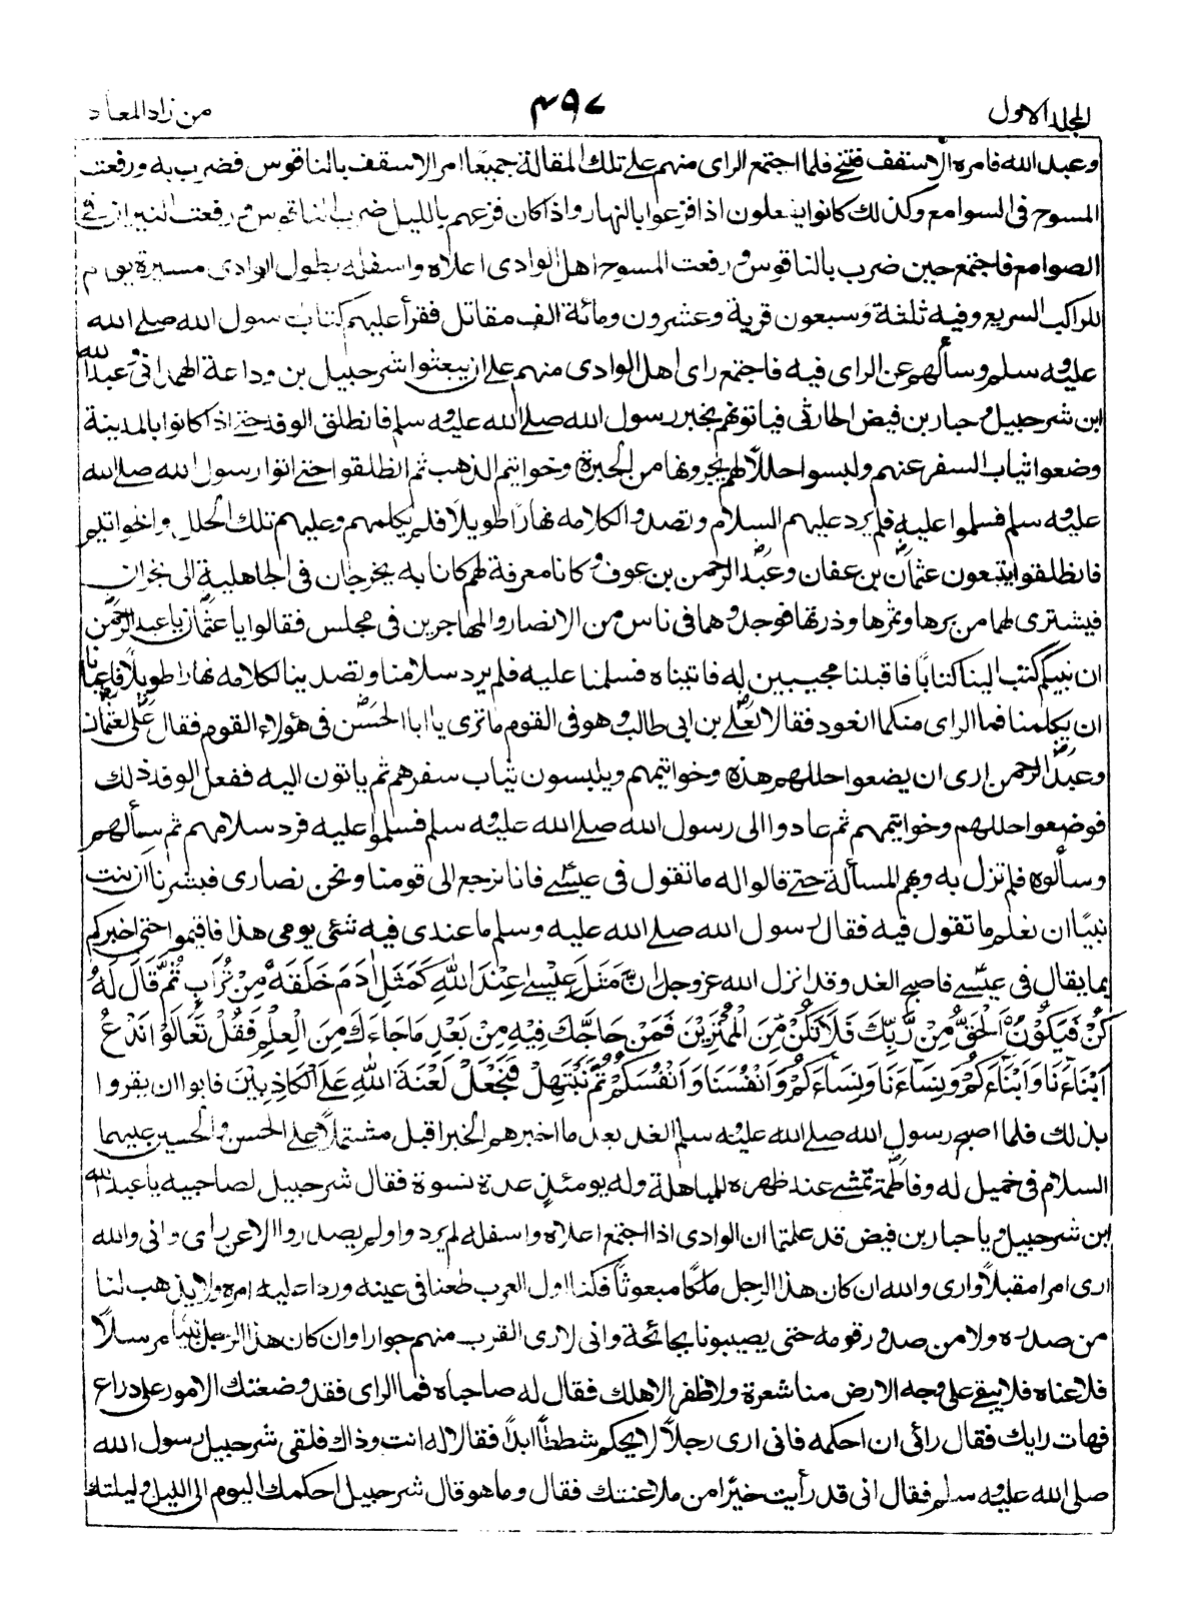 المجلد الاول
٤٩٧
من زاد المعاد
وعبد الله فامره الاسقف فتنحى فلما اجتمع الراى منهم على تلك المقالة جميعًا امر الاسقف بالناقوس فضرب به ورفعت
المسوح فى السوامع وكذلك كانوا يفعلون اذا فزعوا بالنهار واذا كان فزعهم بالليل ضرب الناقوس ورفعت النيران فى
الصوامع فاجتمع حين ضرب بالناقوس ورفعت المسوح اهل الوادى اعلاه واسفله بطول الوادى مسيرة يوم
للراكب السريع وفيه ثلثة وسبعون قرية وعشرون ومائة الف مقاتل فقرأ عليهم كتاب رسول الله صلى الله
عليه وسلم وسألهم عن الراى فيه فاجتمع راى اهل الوادى منهم على ان يبعثوا شرحبيل بن وداعة الهمدانى وعبد الله
ابن شرحبيل وجبار بن فيض الحارثى فياتونهم بخبر رسول الله صلى الله عليه وسلم فانطلق الوفد حتى اذا كانوا بالمدينة
وضعوا ثياب السفر عنهم ولبسوا حللاً لهم يجرونها من الحبرة وخواتيم الذهب ثم انطلقوا حتى اتوا رسول الله صلى الله
عليه وسلم فسلموا عليه فلم يرد عليهم السلام وتصدوا لكلامه نهارًا طويلاً فلم يكلمهم وعليهم تلك الحلل والخواتيم
فانطلقوا يتبعون عثمان بن عفان وعبد الرحمن بن عوف وكانا معرفة لهم كانا به يخرجان فى الجاهلية الى نجران
فيشترى لهما من برها وثمرها وذرتها فوجدوهما فى ناس من الانصار والمهاجرين فى مجلس فقالوا يا عثمان يا عبد الرحمن
ان نبيكم كتب الينا كتابًا فاقبلنا مجيبين له فاتيناه فسلمنا عليه فلم يرد سلامنا وتصدينا لكلامه نهارا طويلاً فاعيانا
ان يكلمنا فما الراى منكما انعود فقالا لعلى بن ابى طالب وهو فى القوم ما ترى يا ابا الحسن فى هؤلاء القوم فقال على لعثمان
وعبد الرحمن ارى ان يضعوا حللهم هذه وخواتيمهم ويلبسون ثياب سفرهم ثم ياتون اليه ففعل الوفد ذلك
فوضعوا حللهم وخواتيمهم ثم عادوا الى رسول الله صلى الله عليه وسلم فسلموا عليه فرد سلامهم ثم سألهم
وسألوه فلم تزل به وبهم المسألة حتى قالوا له ما تقول فى عيسى فانا نرجع الى قومنا ونحن نصارى فبشرنا ان كنت
نبيًا ان نعلم ما تقول فيه فقال رسول الله صلى الله عليه وسلم ما عندى فيه شئى يومى هذا فاقيموا حتى اخبركم
بما يقال فى عيسى فاصبح الغد وقد انزل الله عزوجل اِنَّ مَثَلَ عِيْسٰى عِنْدَ اللهِ كَمَثَلِ اٰدَمَ خَلَقَهٗ مِنْ تُرَابٍ ثُمَّ قَالَ لَهٗ
كُنْ فَيَكُوْنُ اَلْحَقُّ مِنْ رَّبِّكَ فَلَا تَكُنْ مِّنَ الْمُمْتَرِيْنَ فَمَنْ حَاجَّكَ فِيْهِ مِنْ بَعْدِ مَا جَاءَكَ مِنَ الْعِلْمِ فَقُلْ تَعَالَوْا نَدْعُ
اَبْنَاءَنَا وَاَبْنَاءَكُمْ وَنِسَاءَنَا وَنِسَاءَكُمْ وَاَنْفُسَنَا وَاَنْفُسَكُمْ ثُمَّ نَبْتَهِلْ فَنَجْعَلْ لَعْنَةَ اللهِ عَلَى الْكَاذِبِيْنَ فابوا ان يقروا
بذلك فلما اصبح رسول الله صلى الله عليه وسلم الغد بعد ما اخبرهم الخبر اقبل مشتملًا على الحسن والحسين عليهما
السلام فى خميل له وفاطمة تمشى عند ظهره للمباهلة وله يومئذٍ عدة نسوة فقال شرحبيل لصاحبيه يا عبد الله
ابن شرحبيل ويا جبار بن فيض قد علمتما ان الوادى اذا اجتمع اعلاه واسفله لم يردوا ولم يصدروا الا عن راى وانى والله
ارى امرا مقبلاً وارى والله ان كان هذا الرجل ملكًا مبعوثًا فكنا اول العرب طعنا فى عينه وردا عليه امره ولا يذهب لنا
من صدره ولا من صدور قومه حتى يصيبونا بجائحة وانى لارى القرب منهم جوارا وان كان هذا الرجل نبيًا مرسلاً
فلاعناه فلا يبقى على وجه الارض منا شعرة ولا ظفر الا هلك فقال له صاحباه فما الراى فقد وضعتك الامور على ذراع
فهات رايك فقال رائى ان احكمه فانى ارى رجلاً لا يحكم شططًا ابدًا فقالا له انت وذاك فلقى شرحبيل رسول الله
صلى الله عليه وسلم فقال انى قد رأيت خيرًا من ملاعنتك فقال وما هو قال شرحبيل احكمك اليوم الى الليل وليلتك